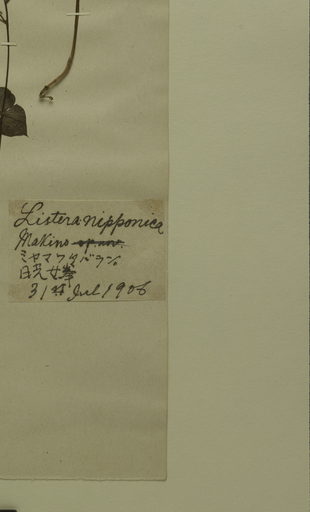 Listera nipponica
Makino sp. nov.
ミヤマフタバラン。
白兀女峯
31st Jul 1906